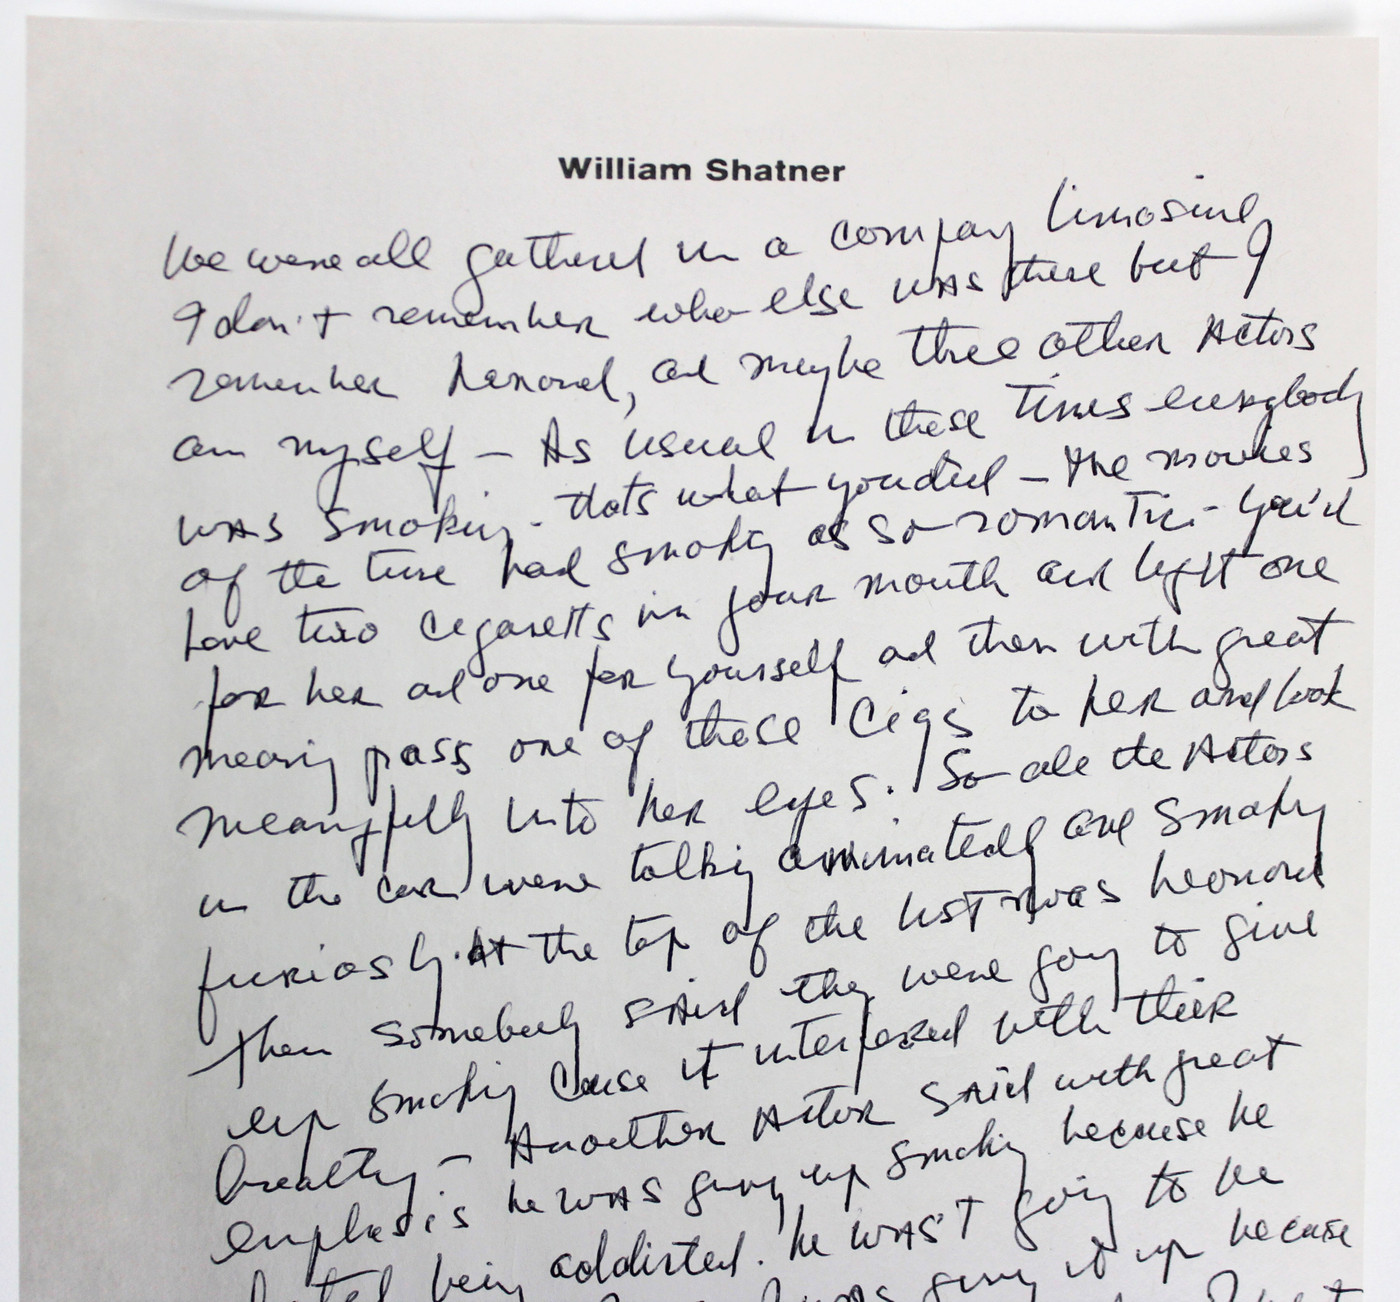 William Shatner
We were all gathered in a company limosine
I don't remember who else was there but I
remember Leonard, and maybe three other Actors
an myself – As usual in these times everybody
was smoking - thats what you did – the movies
of the time had smoking as so romantic - you'd
have two cigaretts in your mouth and light one
for her and one for yourself and then with great
meaning pass one of these cigs to her and look
meaningfully into her eyes. So all the Actors
in the car were talking annimatedly and smoking
furiously. At the top of the list was Leonard
Then somebody said they were going to give
up smoking cause it interfered with their
health – Another Actor said with great
emphasis he was giving up smoking because he
hated being addicted. he wasn't going to be
giving it up because